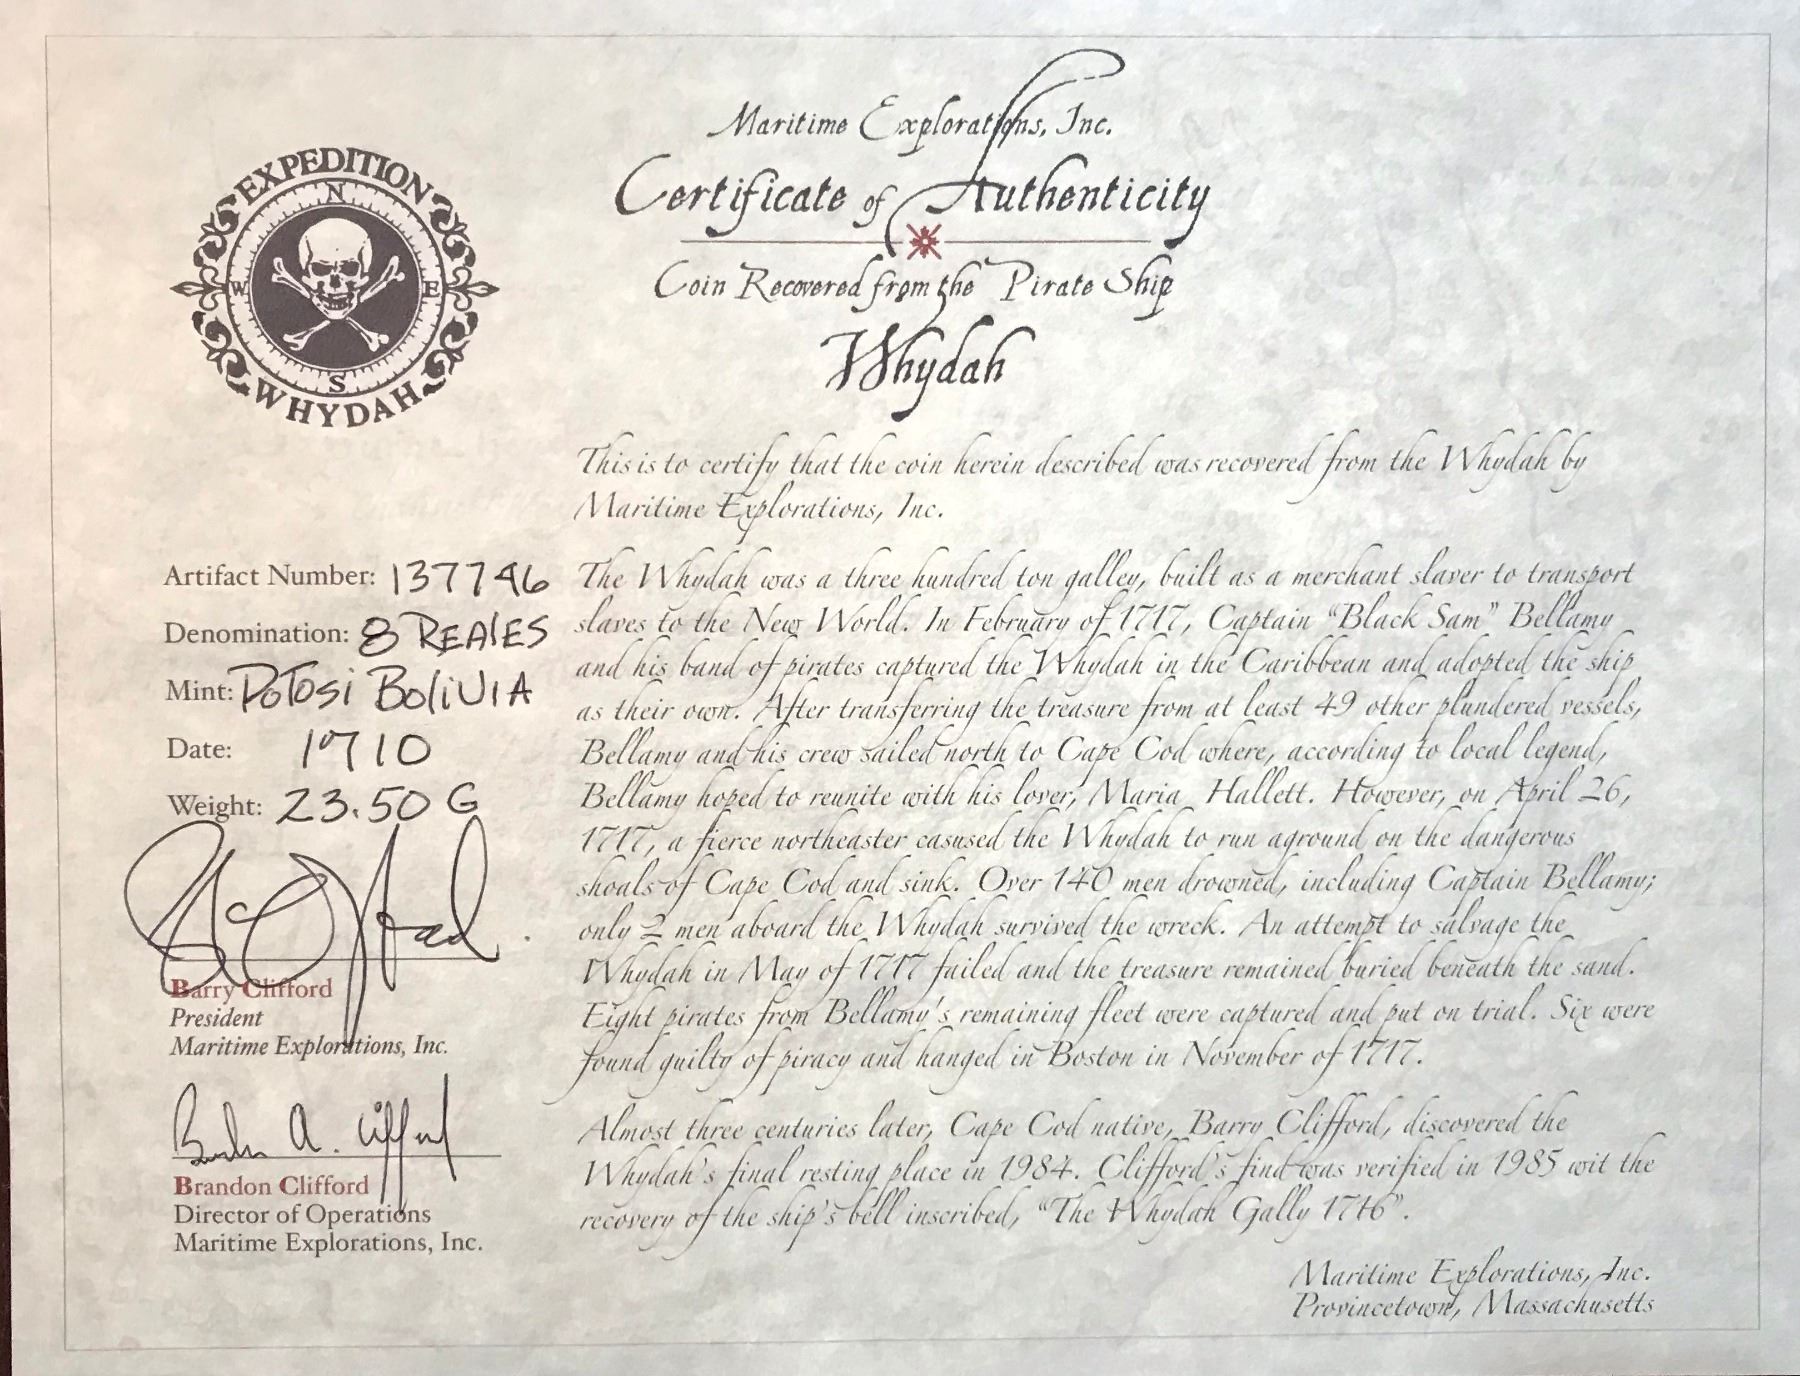 Maritime Explorations, Inc.
Certificate of Authenticity
Coin Recovered from the Pirate Ship
Whydah
EXPEDITION
N
W E
S
WHYDAH
This is to certify that the coin herein described was recovered from the Whydah by
Maritime Explorations, Inc.
Artifact Number: 137746
Denomination: 8 REAlES
Mint: POTOSi BOliVIA
Date: 1710
Weight: 23.50 G
Barry Clifford
President
Maritime Explorations, Inc.
Brandon A. Clifford
Brandon Clifford
Director of Operations
Maritime Explorations, Inc.
The Whydah was a three hundred ton galley, built as a merchant slaver to transport
slaves to the New World. In February of 1717, Captain "Black Sam" Bellamy
and his band of pirates captured the Whydah in the Caribbean and adopted the ship
as their own. After transferring the treasure from at least 49 other plundered vessels,
Bellamy and his crew sailed north to Cape Cod where, according to local legend,
Bellamy hoped to reunite with his lover, Maria Hallett. However, on April 26,
1717, a fierce northeaster casused the Whydah to run aground on the dangerous
shoals of Cape Cod and sink. Over 140 men drowned, including Captain Bellamy;
only 2 men aboard the Whydah survived the wreck. An attempt to salvage the
Whydah in May of 1717 failed and the treasure remained buried beneath the sand.
Eight pirates from Bellamy's remaining fleet were captured and put on trial. Six were
found guilty of piracy and hanged in Boston in November of 1717.
Almost three centuries later, Cape Cod native, Barry Clifford, discovered the
Whydah's final resting place in 1984. Clifford's find was verified in 1985 wit the
recovery of the ship's bell inscribed, "The Whydah Gally 1716".
Maritime Explorations, Inc.
Provincetown, Massachusetts